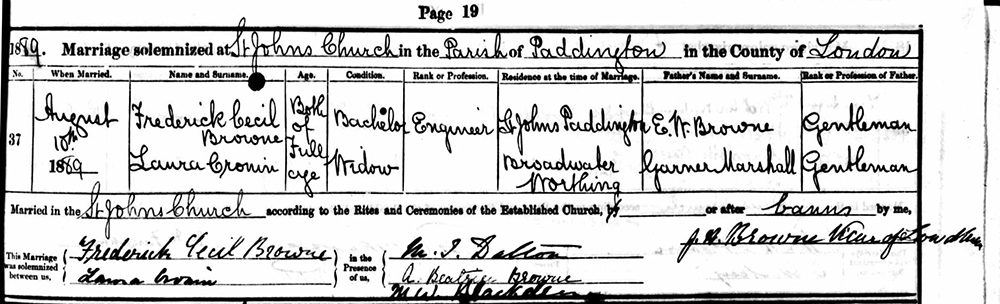 Page 19
1889. Marriage solemnized at St Johns Church in the Parish of Paddington in the County of London
No. When Married. Name and Surname. Age. Condition. Rank or Profession. Residence at the time of Marriage. Father's Name and Surname. Rank or Profession of Father.
37 August 10th 1889 Frederick Cecil Browne Both of Full age Bachelor Engineer St Johns Paddington E. W. Browne Gentleman
Laura Cronin Widow Broadwater Worthing Garner Marshall Gentleman
Married in the St Johns Church according to the Rites and Ceremonies of the Established Church, by or after banns by me,
This Marriage was solemnized between us, Frederick Cecil Browne in the Presence of us, M. J. Dalton J. H. Browne Vicar of
Laura Cronin A. Beatrice Browne
M W